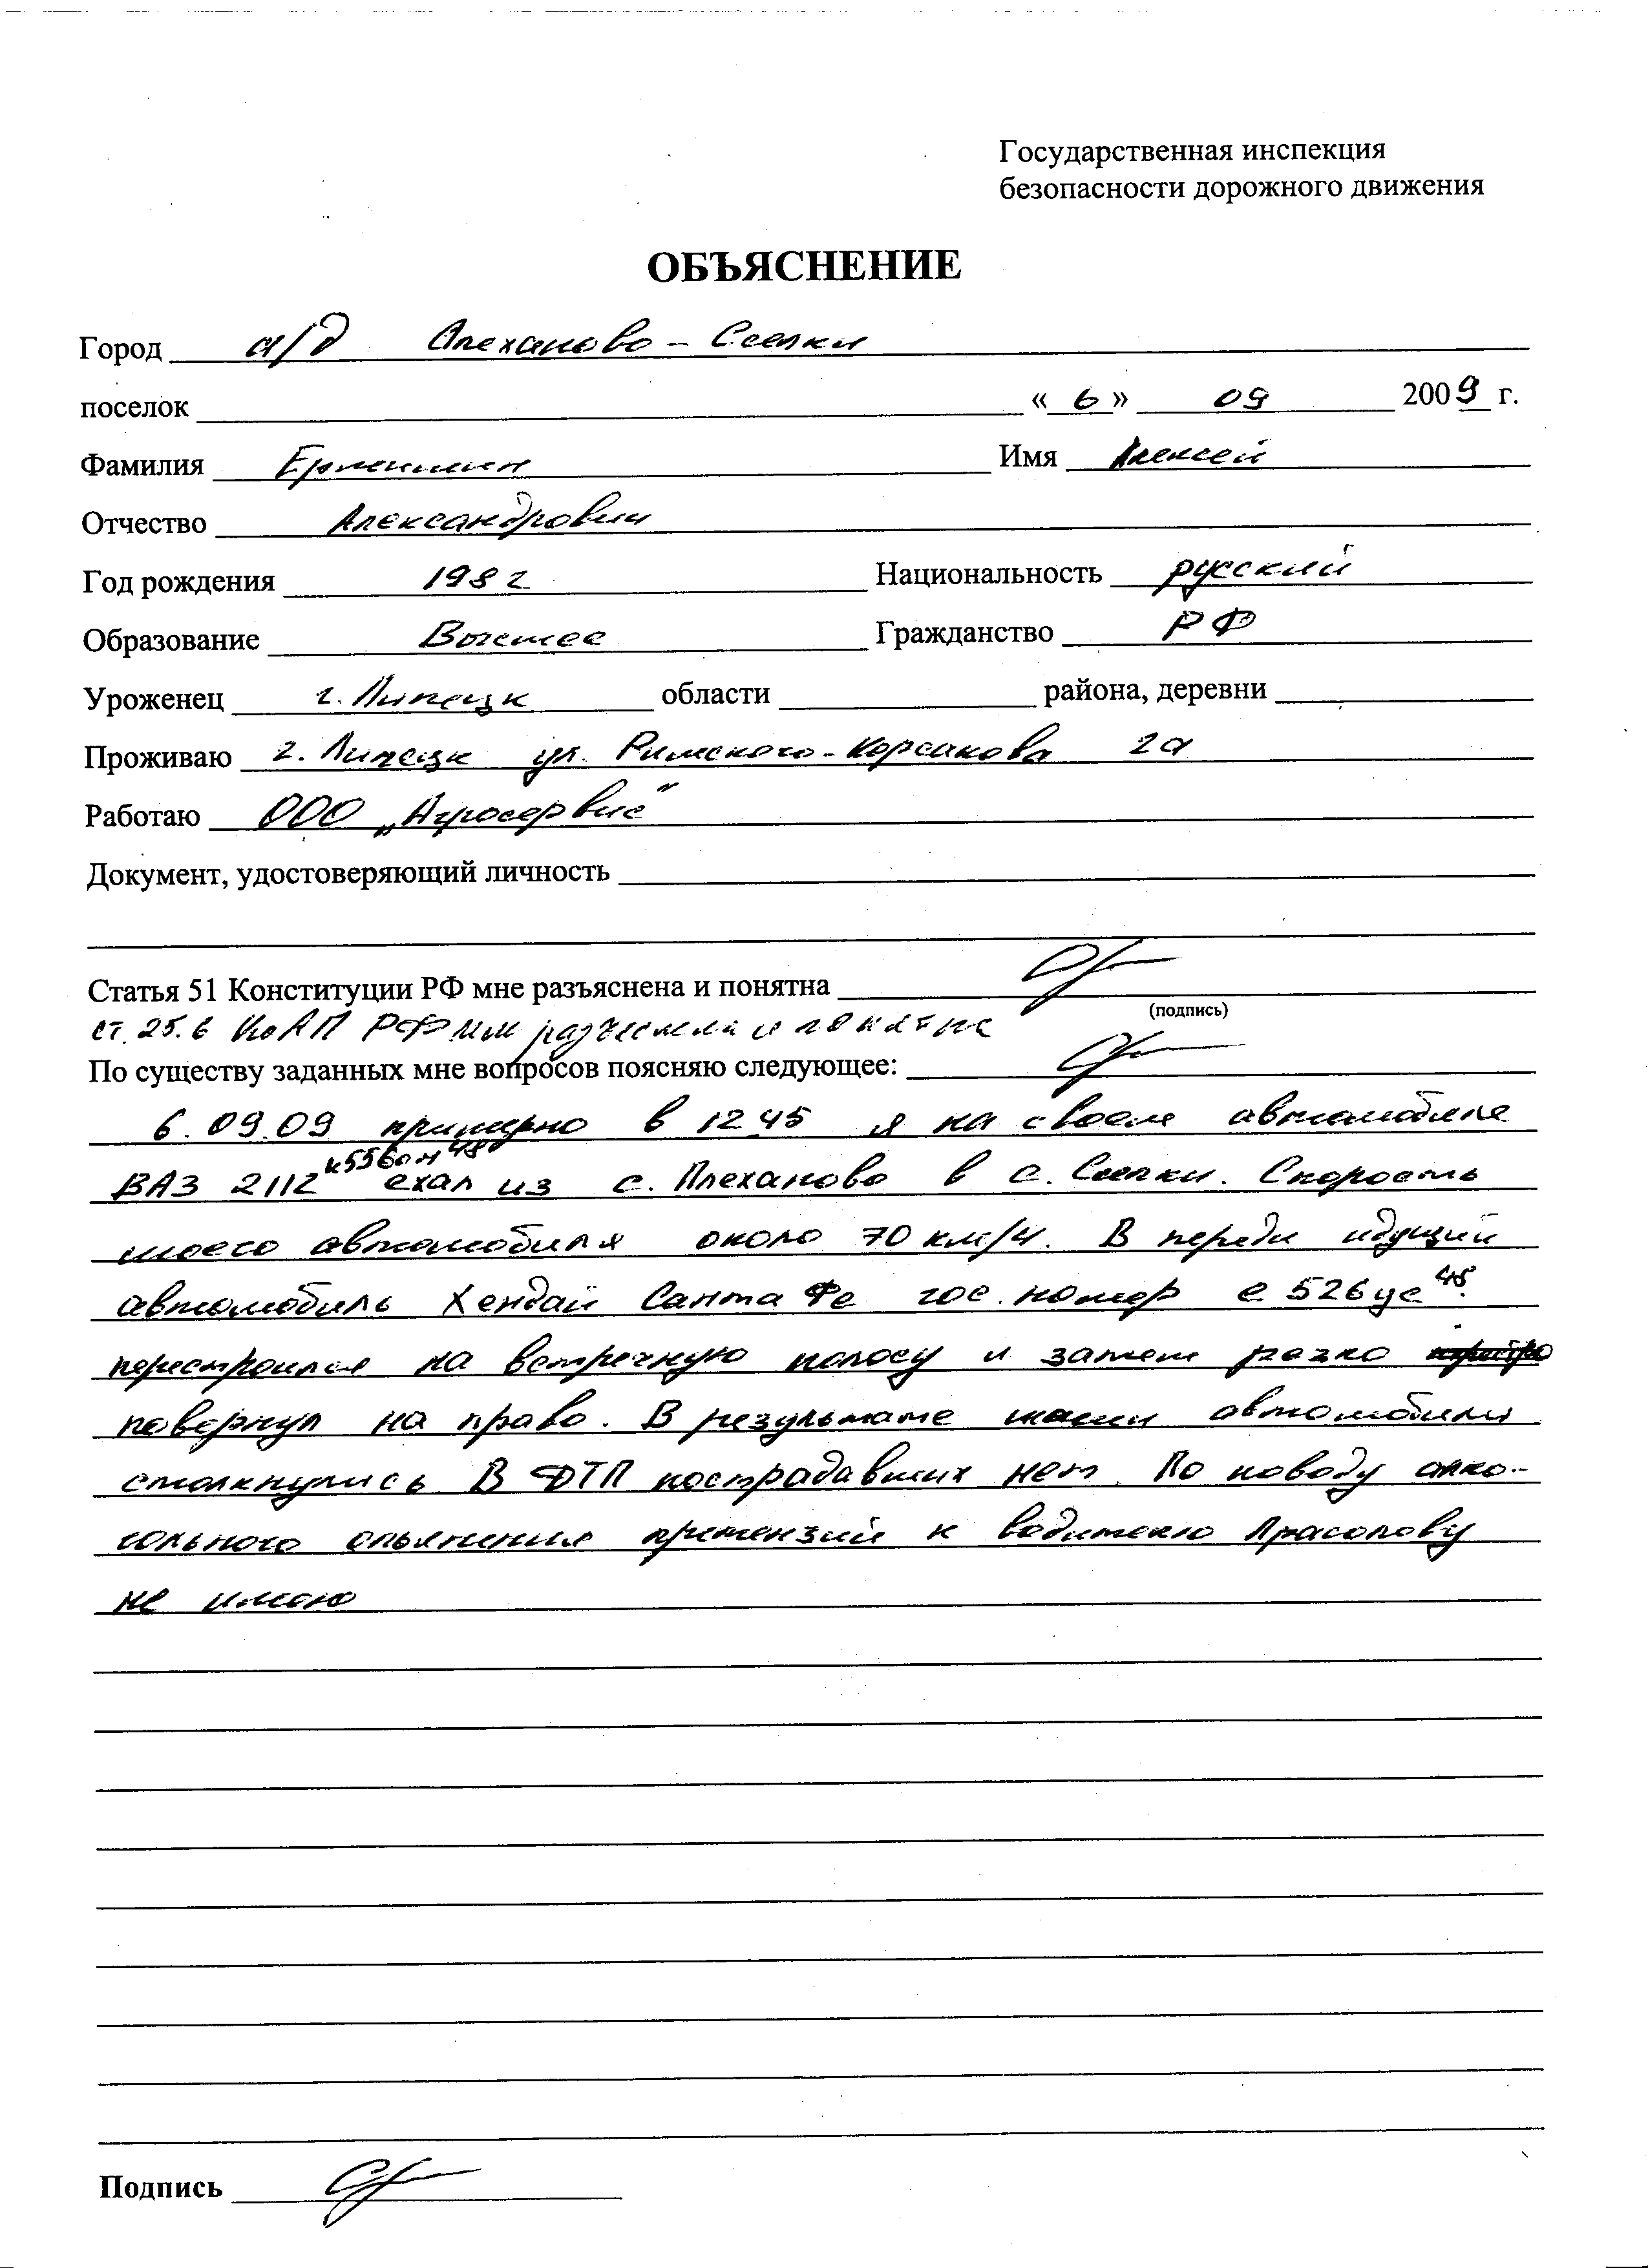 Государственная инспекция
безопасности дорожного движения
ОБЪЯСНЕНИЕ
Город а/д Плеханово - Сселки
поселок « 6 » 09 2009 г.
Фамилия Имя Алексей
Отчество Александрович
Год рождения 1982 Национальность русский
Образование Высшее Гражданство РФ
Уроженец г. Липецк области района, деревни
Проживаю г. Липецк ул. Римского-Корсакова 2а
Работаю ООО „Агросервис"
Документ, удостоверяющий личность
Статья 51 Конституции РФ мне разъяснена и понятна
(подпись)
ст. 25.6 КоАП РФ мне разъяснена и понятна
По существу заданных мне вопросов поясняю следующее:
6.09.09 примерно в 12 45 я на своем автомобиле
ВАЗ 2112 к556он 48 ехал из с. Плеханово в с. Сселки. Скорость
моего автомобиля около 70 км/ч. В переди идущий
автомобиль Хендай Санта Фе гос. номер е 526 ус 48.
перестроился на встречную полосу и затем резко
повернул на право. В результате наши автомобили
столкнулись В ДТП пострадавших нет. По поводу алко-
гольного опьянения притензий к водителю Прасолову
не имею
Подпись